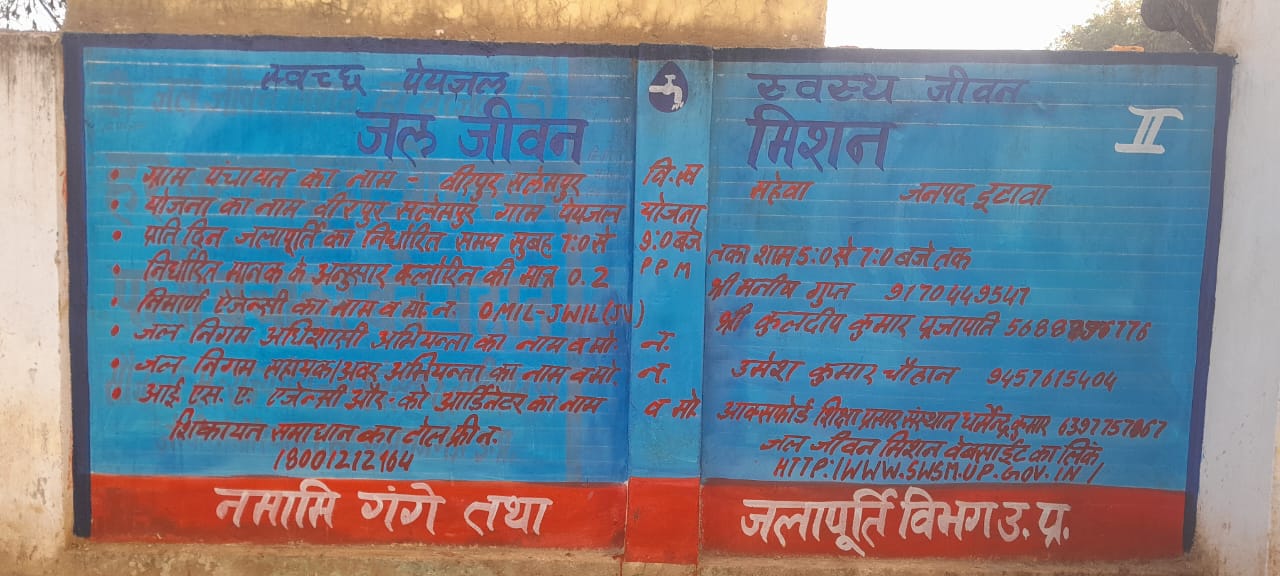 स्वच्छ पेयजल स्वस्थ जीवन
जल जीवन मिशन II
• ग्राम पंचायत का नाम - वीरपुर सलेमपुर वि.ख महेवा जनपद इटावा
• योजना का नाम वीरपुर सलेमपुर गाम पेयजल योजना
• प्रति दिन जलापूर्ति का निर्धारित समय सुबह 7:0 से 9:0 बजे तका शाम 5:0 से 7:0 बजे तक
• निर्धारित मानक के अनुसार क्लोरिन की मात्र 0.2 PPM
• निमार्ण ऐजेन्सी का नाम व मो. न. OMIL-JWIL(JV) श्री मनीष गुप्त 9170449547
• जल निगम अधिशासी अभियन्ता का नाम व मो न. श्री कुलदीप कुमार प्रजापति
• जल निगम सहायक/अवर अभियन्ता का नाम व मो. न. उमेश कुमार चौहान 9457615404
• आई. एस. ए. ऐजेन्सी और को आर्डिनेटर का नाम व मो. आक्सफोर्ड शिक्षा प्रसार संस्थान धर्मेन्द्र कुमार 6397757867
शिकायत समाधान का टोल फ्री न.
18001212164
जल जीवन मिशन वेबसाईट का लिंक
HTTP.|WWW.SWSM.UP.GOV.IN/
नमामि गंगे तथा जलापूर्ति विभग उ. प्र.